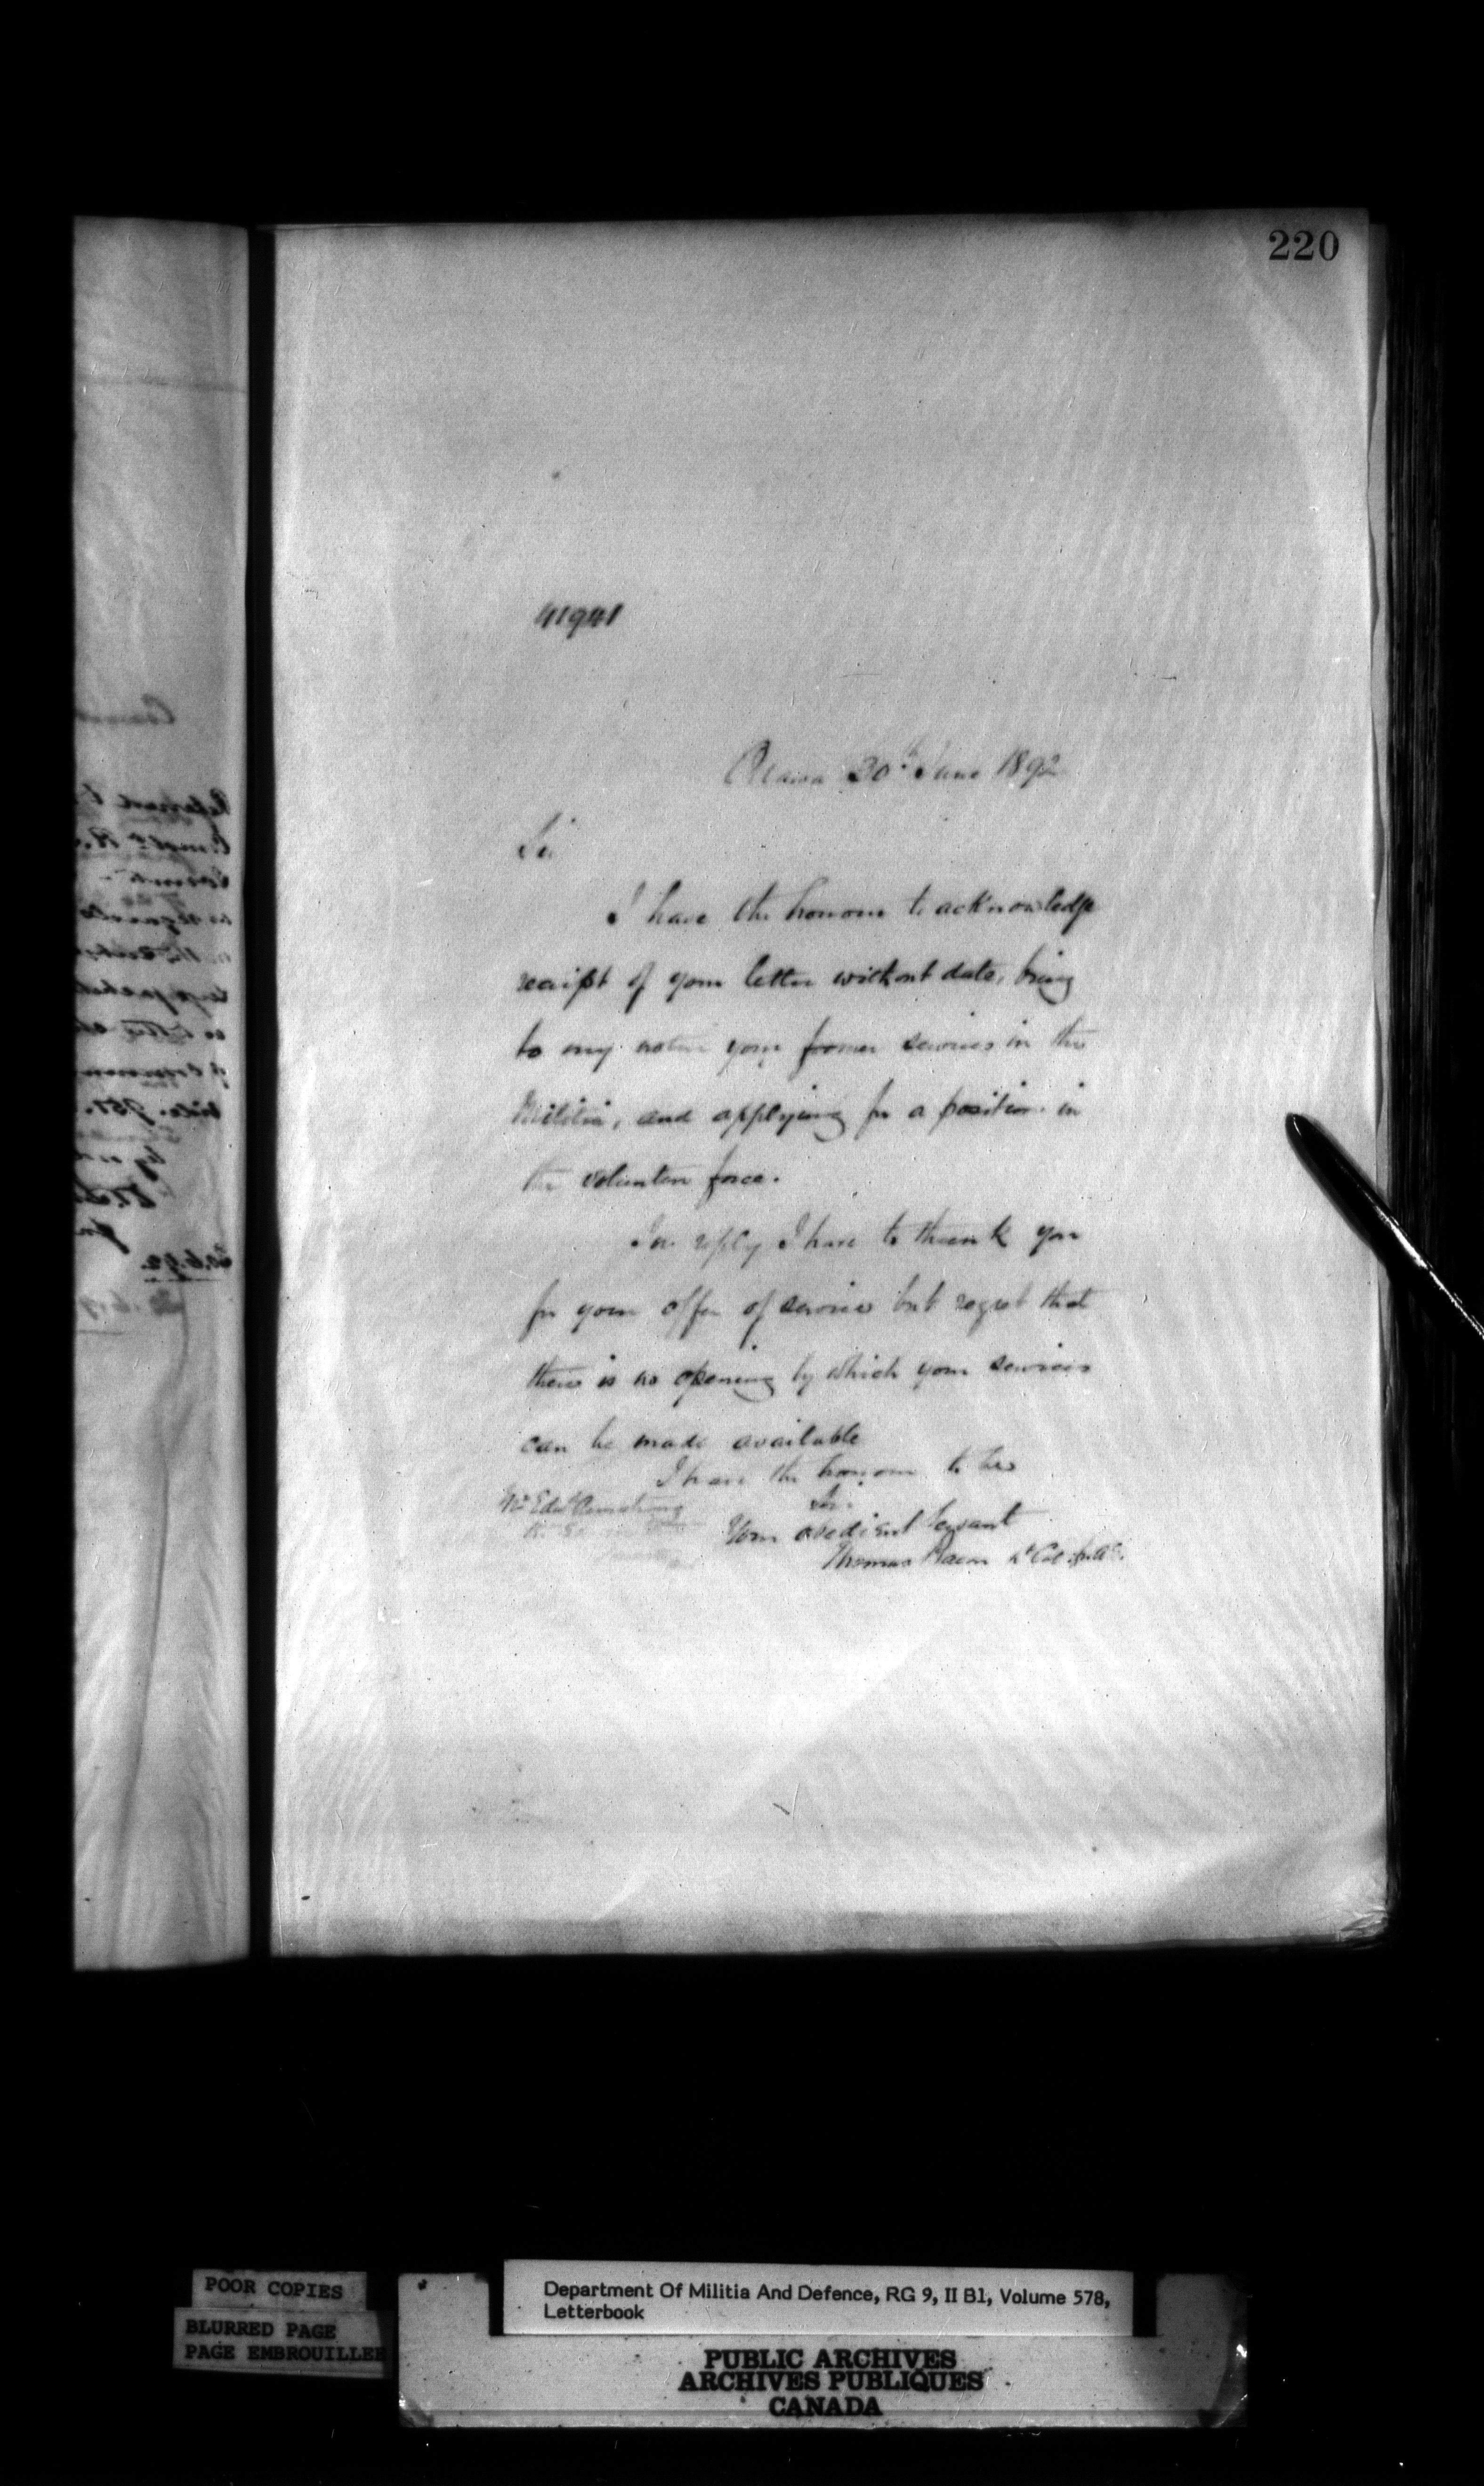 220
41941
Ottawa 30th June 1892
Sir
I have the honour to acknowledge
receipt of your letter without date, bring
to my notice your former services in the
Militia, and applying for a position in
the volunteer force.
In reply I have to thank you
for your offer of service but regret that
there is no opening by which your services
can be made available
I have the honour to be
Sir
Mr Edwd Armstrong
Your obedient Servant
Thomas Bacon Lt Col
POOR COPIES
BLURRED PAGE
PAGE EMBROUILLEE
Department Of Militia And Defence, RG 9, II B1, Volume 578,
Letterbook
PUBLIC ARCHIVES
ARCHIVES PUBLIQUES
CANADA